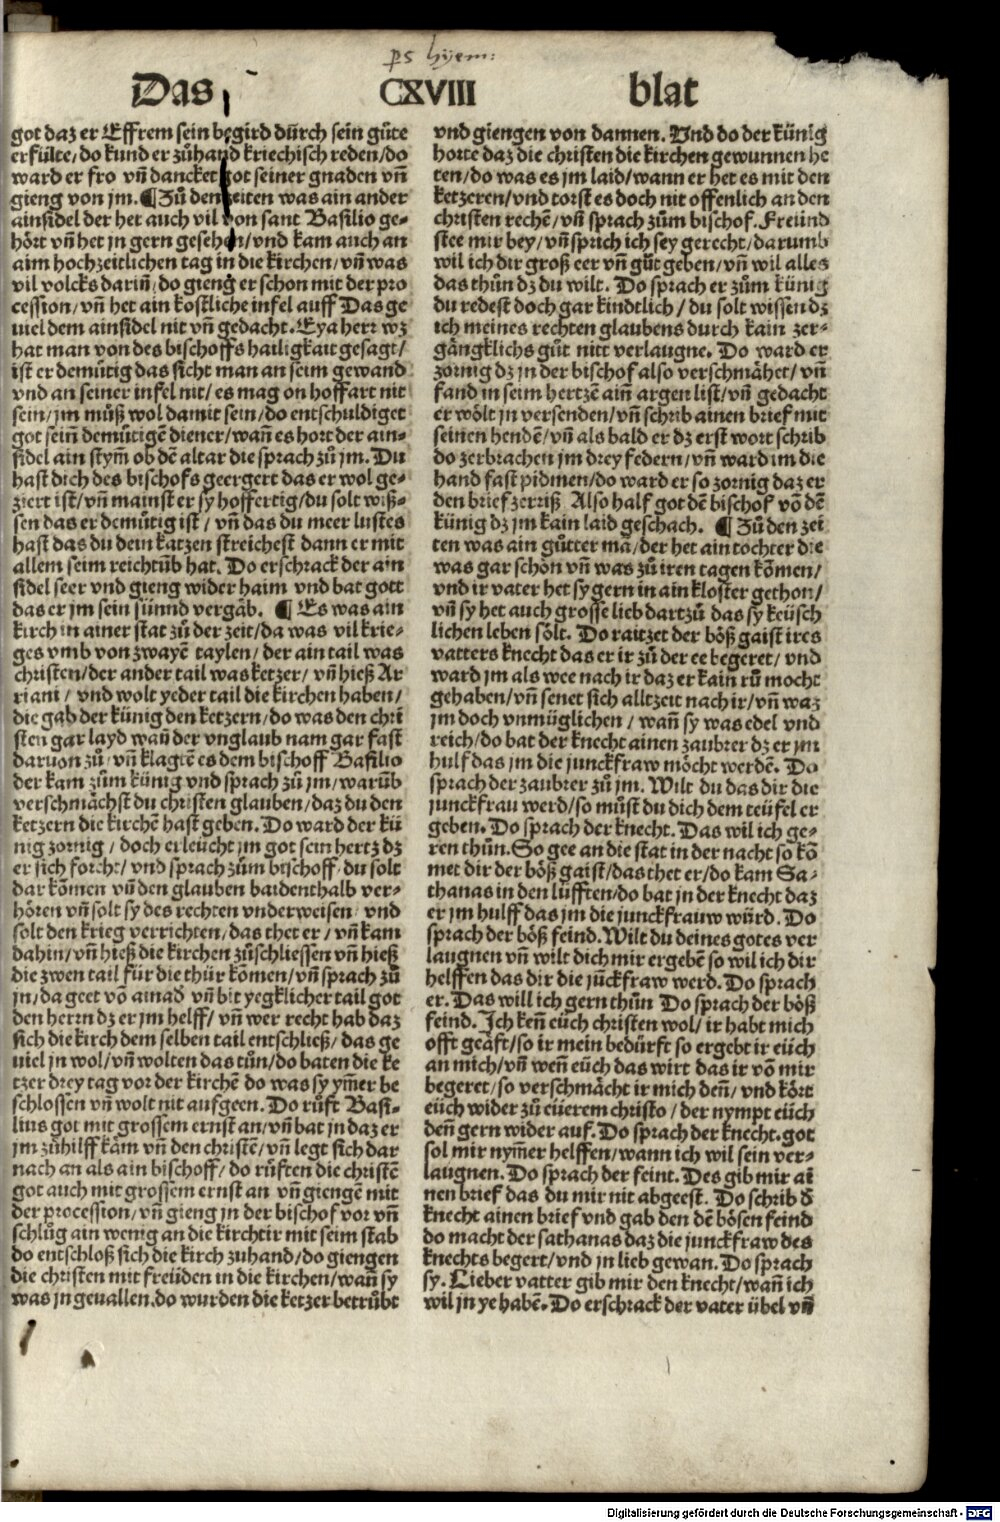 ps hyem:
Das CXVIII blat
got daz er Effrem sein begird dürch sein gůte
erfülte/do kund er zůhand kriechisch reden/do
ward er fro vn̄ dancket got seiner gnaden vn̄
gieng von jm. ¶ Zů den zeiten was ain ander
ainsidel der het auch vil von sant Basilio ge-
hört vn̄ het jn gern gesehen/vnd kam auch an
aim hochzeitlichen tag in die kirchen/vn̄ was
vil volcks dariñ/do gieng er schon mit der pro
cession/vn̄ het ain kostliche infel auff Das ge
uiel dem ainsidel nit vn̄ gedacht. Eya herr wz
hat man von des bischoffs hailigkait gesagt/
ist er demütig das sicht man an seim gewand
vnd an seiner infel nit/es mag on hoffart nit
sein/jm můß wol damit sein/do entschuldiget
got sein̄ demütigē diener/wan̄ es hort der ain-
sidel ain stym̄ ob dē altar die sprach zů jm. Du
hast dich des bischofs geergert das er wol ge-
ziert ist/vn̄ mainst er sy hoffertig/du solt wiß-
sen das er demütig ist/vn̄ das du meer lustes
hast das du dein katzen streichest dann er mit
allem seim reichtůb hat. Do erschrack der ain
sidel seer vnd gieng wider haim vnd bat gott
das er jm sein sünnd vergäb. ¶ Es was ain
kirch in ainer stat zů der zeit/da was vil krie-
ges vmb von zwayē taylen/der ain tail was
christen/der ander tail was ketzer/vn̄ hieß Ar
riani/vnd wolt yeder tail die kirchen haben/
die gab der künig den ketzern/do was den chri
sten gar layd wan̄ der vnglaub nam gar fast
daruon zů/vn̄ klagtē es dem bischoff Basilio
der kam zům künig vnd sprach zů jm/warūb
verschmächst du christen glauben/daz du den
ketzern die kirchē hast geben. Do ward der kü
nig zornig/doch erleücht jm got sein hertz dz
er sich forcht/vnd sprach zům bischoff/du solt
dar kōmen vn̄ den glauben baidenthalb ver-
hören vn̄ solt sy des rechten vnderweisen/vnd
solt den krieg verrichten/das thet er/vn̄ kam
dahin/vn̄ hieß die kirchen zůschliessen vn̄ hieß
die zwen tail für die thür kōmen/vn̄ sprach zů
jn/da geet vō ainad vn̄ bit yegklicher tail got
den herrn dz er jm helff/vn̄ wer recht hab daz
sich die kirch dem selben tail entschließ/das ge
uiel jn wol/vn̄ wolten das tůn/do baten die ke
tzer drey tag vor der kirchē do was sy ym̄er be
schlossen vn̄ wolt nit aufgeen. Do růft Basi-
lius got mit grossem ernst an/vn̄ bat jn daz er
jm zůhilff käm vn̄ den christē/vn̄ legt sich dar
nach an als ain bischoff/do růften die christē
got auch mit grossem ernst an vn̄ giengē mit
der procession/vn̄ gieng jn der bischof vor vn̄
schlůg ain wenig an die kirchtir mit seim stab
do entschloß sich die kirch zuhand/do giengen
die christen mit freüden in die kirchen/wan̄ sy
was jn geuallen.do wurden die ketzer betrůbt
vnd giengen von dannen. Vnd do der künig
horte daz die christen die kirchen gewunnen he
ten/do was es jm laid/wann er het es mit den
ketzeren/vnd torst es doch nit offenlich an den
christen rechē/vn̄ sprach zům bischof. Freünd
stee mir bey/vn̄ sprich ich sey gerecht/darumb
wil ich dir groß eer vn̄ gůt geben/vn̄ wil alles
das thůn dz du wilt. Do sprach er zům künig
du redest doch gar kindtlich/du solt wissen dz
ich meines rechten glaubens durch kain zer-
gängklichs gůt nitt verlaugne. Do ward er
zornig dz jn der bischof also verschmähet/vn̄
fand in seim hertzē ain̄ argen list/vn̄ gedacht
er wölt jn versenden/vn̄ schrib ainen brief mit
seinen hendē/vn̄ als bald er dz erst wort schrib
do zerbrachen jm drey federn/vn̄ ward im die
hand fast pidmen/do ward er so zornig daz er
den brief zerriß Also half got dē bischof vō dē
künig dz jm kain laid geschach. ¶ Zů den zei
ten was ain gůtter mā/der het ain tochter die
was gar schön vn̄ was zů iren tagen kōmen/
vnd ir vater het sy gern in ain kloster gethon/
vn̄ sy het auch grosse lieb dartzů das sy keüsch
lichen leben sölt. Do raitzet der böß gaist ires
vatters knecht das er ir zů der ee begeret/vnd
ward jm als wee nach ir daz er kain rů mocht
gehaben/vn̄ senet sich alltzeit nach ir/vn̄ waz
jm doch vnmüglichen/wan̄ sy was edel vnd
reich/do bat der knecht ainen zaubrer dz er jm
hulf das jm die junckfraw möcht werdē. Do
sprach der zaubrer zů jm. Wilt du das dir die
junckfrau werd/so můst du dich dem teüfel er
geben. Do sprach der knecht. Das wil ich ge-
ren thůn. So gee an die stat in der nacht so kō
met dir der böß gaist/das thet er/do kam Sa-
thanas in den lüfften/do bat jn der knecht daz
er jm hulff das jm die junckfrauw würd. Do
sprach der böß feind. Wilt du deines gotes ver
laugnen vn̄ wilt dich mir ergebē so wil ich dir
helffen das dir die jūckfraw werd. Do sprach
er. Das will ich gern thůn Do sprach der böß
feind. Ich ken̄ eüch christen wol/ir habt mich
offt geäft/so ir mein bedürft so ergebt ir eüch
an mich/vn̄ wen̄ eüch das wirt das ir vō mir
begeret/so verschmächt ir mich den̄/vnd kört
eüch wider zů eüerem christo/der nympt eüch
den̄ gern wider auf. Do sprach der knecht.got
sol mir nym̄er helffen/wann ich wil sein ver-
laugnen. Do sprach der feint. Des gib mir ai
nen brief das du mir nit abgeest. Do schrib d̄
knecht ainen brief vnd gab den dē bösen feind
do macht der sathanas daz die junckfraw des
knechts begert/vnd jn lieb gewan. Do sprach
sy. Lieber vatter gib mir den knecht/wan̄ ich
wil jn ye habē. Do erschrack der vater übel vn̄
Digitalisierung gefördert durch die Deutsche Forschungsgemeinschaft - DFG